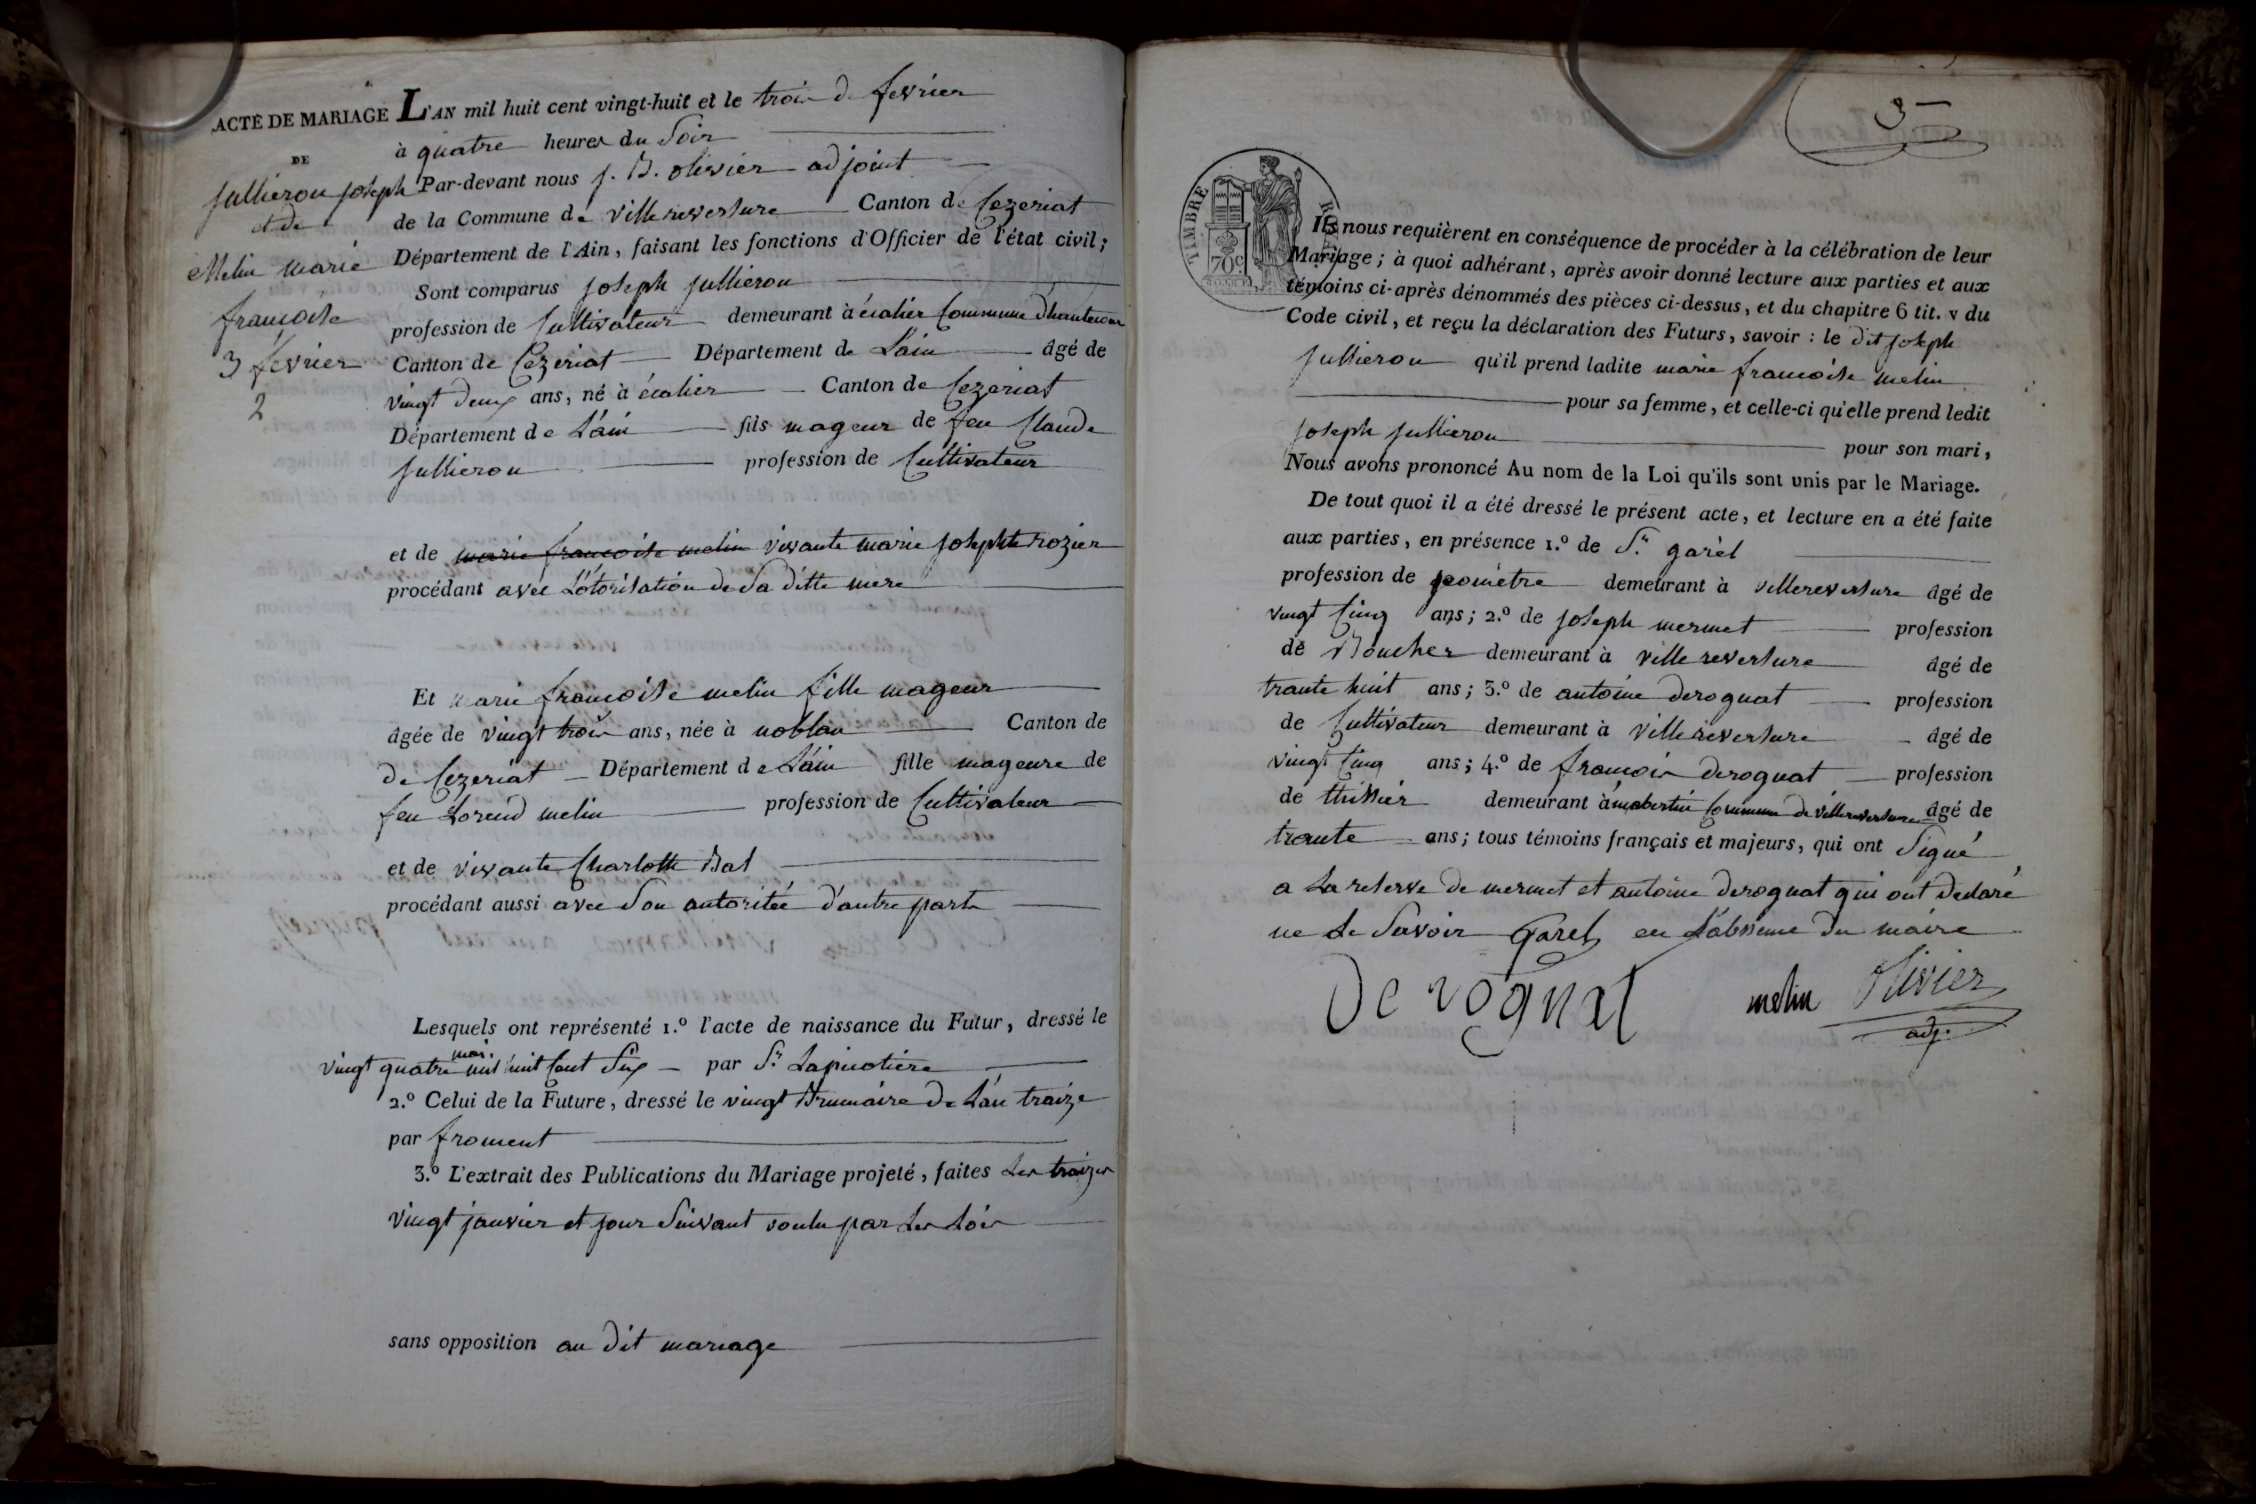 ACTE DE MARIAGE
DE
jullieron joseph
et de
Melin marie
francoise
3 fevrier
2
L'AN mil huit cent vingt-huit et le trois de fevrier
à quatre heures du Soir
Par-devant nous j. B. olivier adjoint
de la Commune de villereversure Canton de Cezeriat
Département de l'Ain, faisant les fonctions d'Officier de l'état civil;
Sont comparus joseph jullieron
profession de Cultivateur demeurant à écalier Commune
Canton de Cezeriat Département de L'ain âgé de
vingt deux ans, né à écalier Canton de Cezeriat
Département de L'ain fils mageur de feu Claude
jullieron profession de Cultivateur
et de marie francoise melin vivante marie josephte rozier
procédant avec L'otorisation de Sa ditte mere
Et marie francoise melin fille mageur
âgée de vingt trois ans, née à noblan Canton de
de Cezeriat Département de L'ain fille mageure de
feu Lorend melin profession de Cultivateur
et de vivante Charlotte Bal
procédant aussi avec Son autoritée d'autre part
Lesquels ont représenté 1.º l'acte de naissance du Futur, dressé le
vingt quatre mai mil huit Cent Six par Sr. Lapinotiere
2.º Celui de la Future, dressé le vingt Brumaire de L'an traize
par froment
3.º L'extrait des Publications du Mariage projeté, faites Les traizes
vingt janvier et jour Suivant voulu par Les Lois
sans opposition au dit mariage
3
TIMBRE
70c
Ils nous requièrent en conséquence de procéder à la célébration de leur
Mariage; à quoi adhérant, après avoir donné lecture aux parties et aux
témoins ci-après dénommés des pièces ci-dessus, et du chapitre 6 tit. v du
Code civil, et reçu la déclaration des Futurs, savoir: le dit joseph
jullieron qu'il prend ladite marie francoise melin
pour sa femme, et celle-ci qu'elle prend ledit
joseph jullieron pour son mari,
Nous avons prononcé Au nom de la Loi qu'ils sont unis par le Mariage.
De tout quoi il a été dressé le présent acte, et lecture en a été faite
aux parties, en présence 1.º de Sr. garèl
profession de jeometre demeurant à villereversure âgé de
vingt Cinq ans; 2.º de joseph mermet profession
de Boucher demeurant à villereversure âgé de
traute huit ans; 3.º de antoine derognat profession
de Cultivateur demeurant à villereversure âgé de
vingt Cinq ans; 4.º de francois derognat profession
de thissier demeurant à Commune de villereversure âgé de
trante ans; tous témoins français et majeurs, qui ont Signé
a La reserve de mermet et antoine derognat qui ont declaré
ne Le Savoir Garel en L'absence du maire
Derognat melin Olivier
adj.